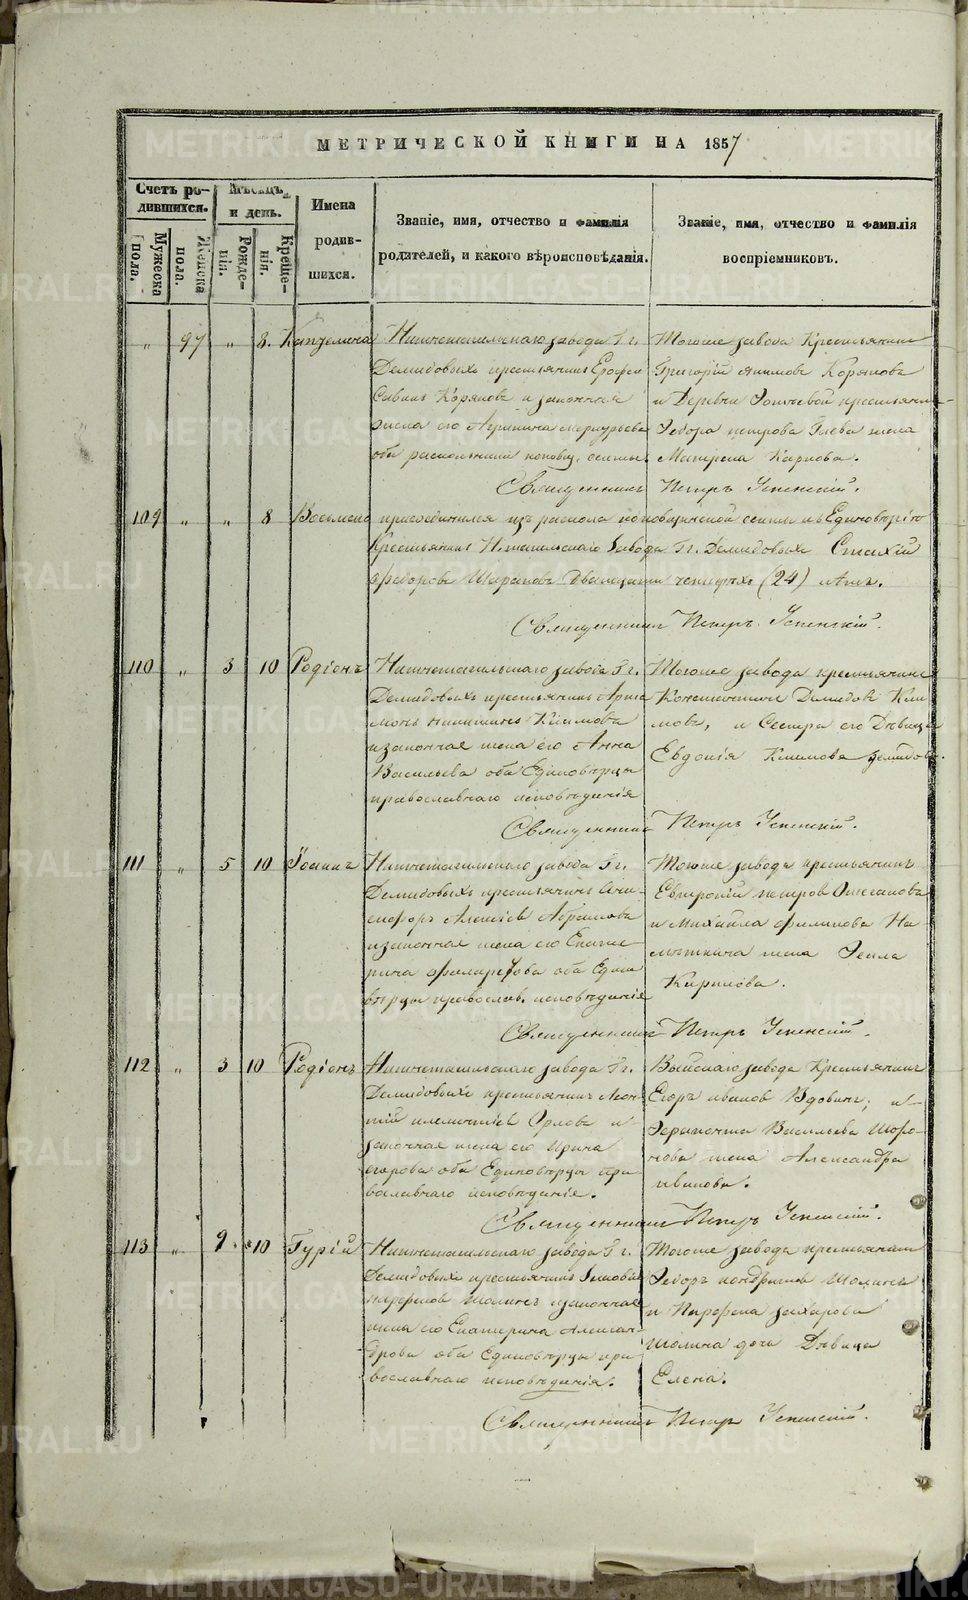 МЕТРИЧЕСКОЙ КНИГИ НА 1857
Счетъ родившихся.
Мужеска пола.
Женска пола.
Мѣсяцъ и день.
Рожденія.
Крещенія.
Имена родившихся.
Званіе, имя, отчество и фамилія родителей, и какого вѣроисповѣданія.
Званіе, имя, отчество и фамилія воспріемниковъ.
„ 97 „ 8.
Нижнетагильскаго завода Гг.
Демидовыхъ крестьянинъ Ерофей
Савинъ Коряковъ и законная
жена его
оба раскольники поповщ. секты.
Тогоже завода Крестьянинъ
Григорій Акимовъ Коряковъ
и Деревни крестьянина
Федора Петрова жена
Матрена Карпова.
Священникъ Петръ Успенскій.
109 „ „ 8
присоединился изъ раскола поповщинской секты къ Единовѣрію
Крестьянинъ Н.тагильскаго Завода Гг. Демидовыхъ Стахій
Федоровъ Шараповъ Двадцати четырехъ (24) лѣтъ.
Священникъ Петръ Успенскій.
110 „ 3 10 Родіонъ
Нижнетагильскаго завода Гг.
Демидовыхъ крестьянинъ Арте
монъ Никитинъ Климовъ
и законная жена его Анна
Васильева оба Единовѣрцы
православнаго исповѣданія
Тогоже завода крестьянинъ
Константинъ Демидовъ Кли
мовъ, и Сестра его Дѣвица
Евдокія Климова Демидова.
Священникъ Петръ Успенскій.
111 „ 5 10 Іоаннъ
Нижнетагильскаго завода Гг.
Демидовыхъ крестьянинъ Ани
сифоръ Алексѣевъ Абрамовъ
и законная жена его Екате
рина Филаретова оба Едино
вѣрцы православ. исповѣданія
Тогоже завода крестьянинъ
Петровъ
и Михаила Филипова На
жена Фекла
Кирилова.
Священникъ Петръ Успенскій.
112 „ 3 10 Родіонъ
Нижнетагильскаго завода Гг.
Демидовыхъ крестьянинъ Леон
тій Орловъ и
законная жена его Ирина
Егорова оба Единовѣрцы пра
вославнаго исповѣданія.
Выйскаго завода Крестьянинъ
Егоръ Ивановъ Вдовинъ, и
Ферапонта Васильева
жена Александра
Иванова.
Священникъ Петръ Успенскій.
113 „ 9 10 Гурій
Нижнетагильскаго завода Гг.
Демидовыхъ крестьянинъ Зиновій
Парфеновъ Шолинъ и законная
жена его Екатерина Алексан
дрова оба Единовѣрцы пра
вославнаго исповѣданія.
Тогоже завода крестьянинъ
Федоръ Кондратовъ Шолинъ
и Парфена Захарова
Шолина дочь Дѣвица
Елена.
Священникъ Петръ Успенскій.
METRIKI.GASO-URAL.RU